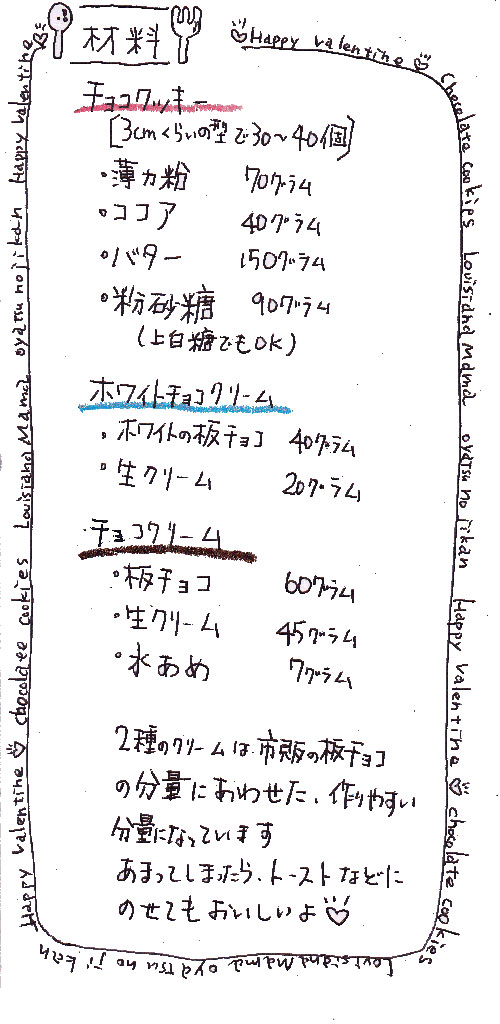 材料
Happy valentine
チョコクッキー
[3cmくらいの型で30～40個]
・薄力粉 70グラム
・ココア 40グラム
・バター 150グラム
・粉砂糖 90グラム
(上白糖でもOK)
ホワイトチョコクリーム
・ホワイトの板チョコ 40グラム
・生クリーム 20グラム
・チョコクリーム
・板チョコ 60グラム
・生クリーム 45グラム
・水あめ 7グラム
2種のクリームは市販の板チョコ
の分量にあわせた、作りやすい
分量になっています
あまってしまったら、トーストなどに
のせてもおいしいよ♡
Chocolate cookies Louisiana Mama oyatsu no jikan Happy valentine ♡ chocolate cookies
Louisiana Mama oyatsu no jikan
Happy valentine ♡ chocolate cookies Louisiana Mama oyatsu no jikan Happy valentine